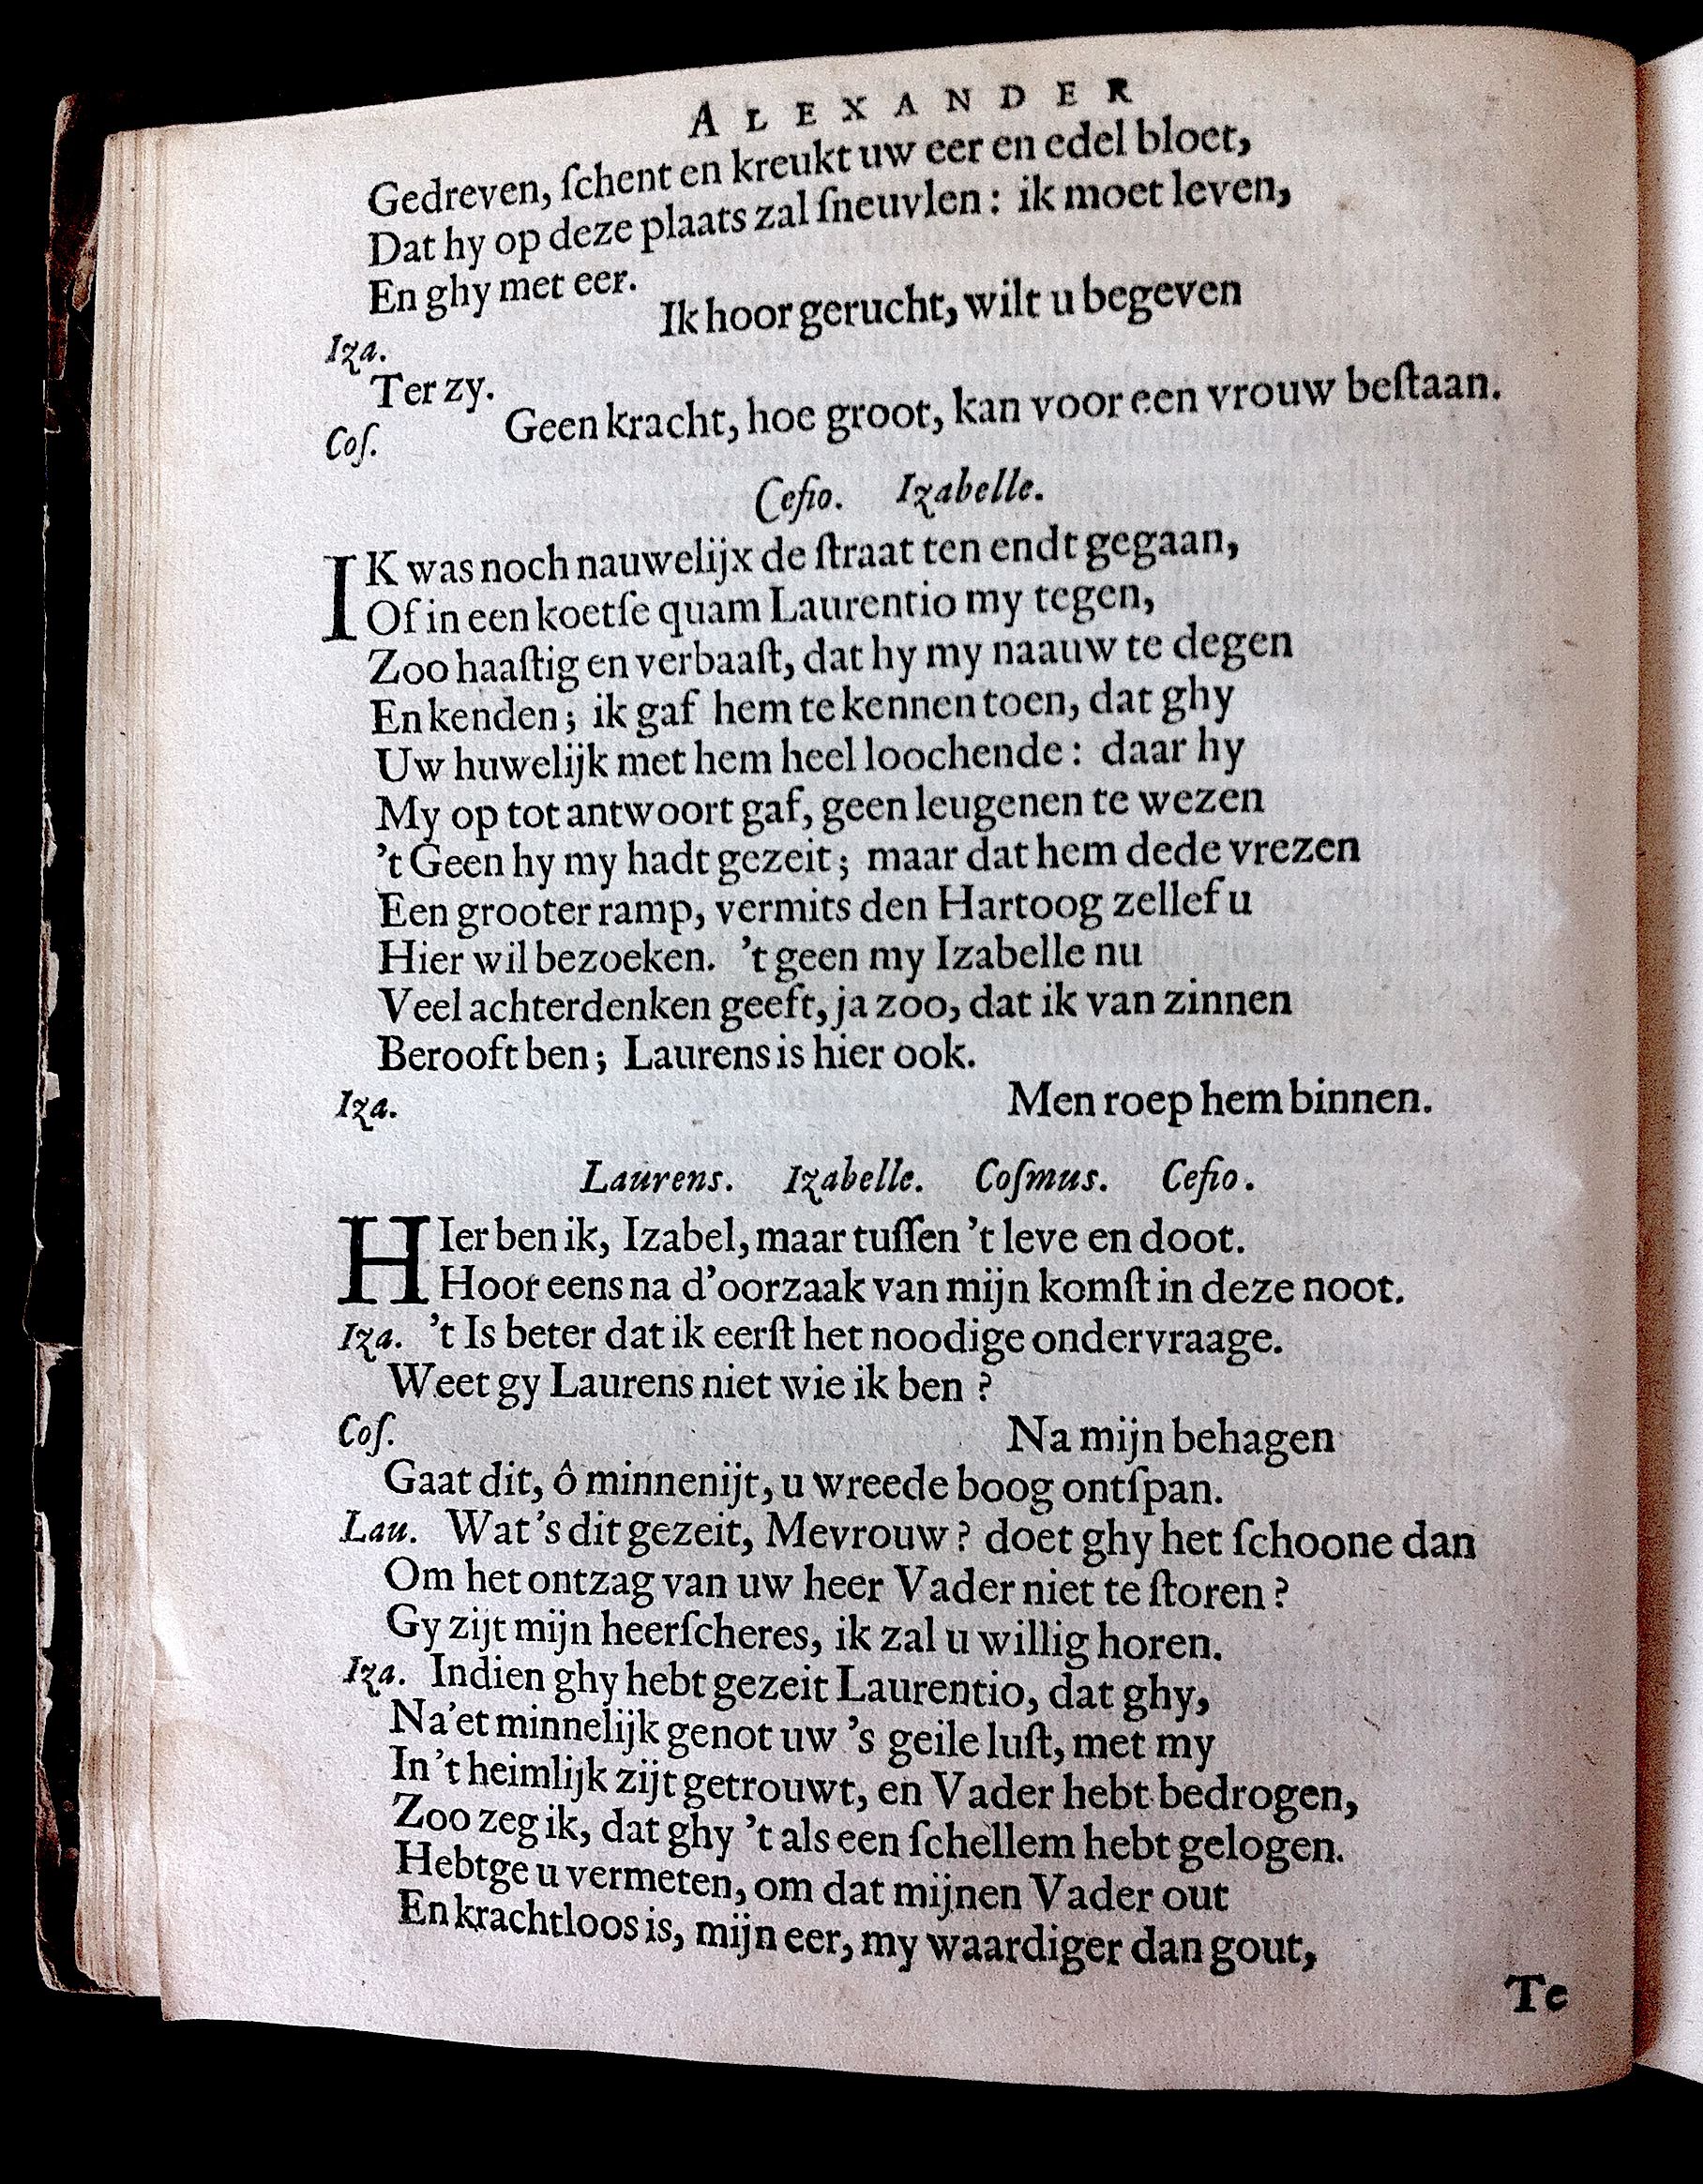 ALEXANDER
Gedreven, ſchent en kreukt uw eer en edel bloet,
Dat hy op deze plaats zal ſneuvlen: ik moet leven,
En ghy met eer.
Iza. Ik hoor gerucht, wilt u begeven
Ter zy.
Coſ. Geen kracht, hoe groot, kan voor een vrouw beſtaan.
Ceſio. Izabelle.
IK was noch nauwelijx de ſtraat ten endt gegaan,
Of in een koetſe quam Laurentio my tegen,
Zoo haaſtig en verbaaſt, dat hy my naauw te degen
En kenden; ik gaf hem te kennen toen, dat ghy
Uw huwelijk met hem heel loochende: daar hy
My op tot antwoort gaf, geen leugenen te wezen
't Geen hy my hadt gezeit; maar dat hem dede vrezen
Een grooter ramp, vermits den Hartoog zellef u
Hier wil bezoeken. 't geen my Izabelle nu
Veel achterdenken geeft, ja zoo, dat ik van zinnen
Berooft ben; Laurens is hier ook.
Iza. Men roep hem binnen.
Laurens. Izabelle. Coſmus. Ceſio.
HIer ben ik, Izabel, maar tuſſen 't leve en doot.
Hoor eens na d'oorzaak van mijn komſt in deze noot.
Iza. 't Is beter dat ik eerſt het noodige ondervraage.
Weet gy Laurens niet wie ik ben?
Coſ. Na mijn behagen
Gaat dit, ô minnenijt, u wreede boog ontſpan.
Lau. Wat 's dit gezeit, Mevrouw? doet ghy het ſchoone dan
Om het ontzag van uw heer Vader niet te ſtoren?
Gy zijt mijn heerſcheres, ik zal u willig horen.
Iza. Indien ghy hebt gezeit Laurentio, dat ghy,
Na'et minnelijk genot uw 's geile luſt, met my
In 't heimlijk zijt getrouwt, en Vader hebt bedrogen,
Zoo zeg ik, dat ghy 't als een ſchellem hebt gelogen.
Hebtge u vermeten, om dat mijnen Vader out
En krachtloos is, mijn eer, my waardiger dan gout,
Te